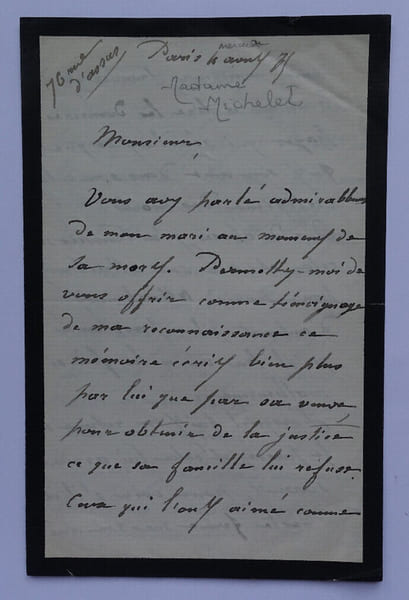 76 rue
d'assas
Paris avril 75
mercredi
Madame
Michelet
Monsieur
Vous avez parlé admirablement
de mon mari au moment de
sa mort. Permettez-moi de
vous offrir comme témoignage
de ma reconnaissance ce
mémoire écrit bien plus
par lui que par sa veuve,
pour obtenir de la justice
ce que sa famille lui refuse.
Ceux qui l'ont aimé comme